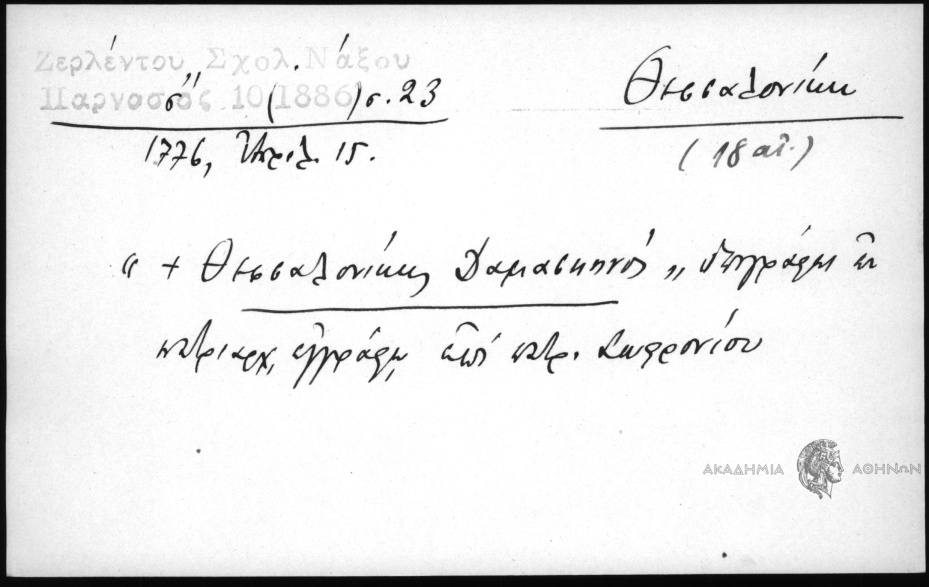 Ζερλέντου Σχολ. Νάξου
Παρνασσός 10 (1886) σ. 23
1776, Ἀπριλ. 15.
Θεσσαλονίκη
(18 αἰ.)
« + Θεσσαλονίκης Δαμασκηνός „ ὑπογράφει ἐν
πατριαρχ. ἐγγράφῳ, ἐπί πατρ. Σωφρονίου
ΑΚΑΔΗΜΙΑ ΑΘΗΝΩΝ